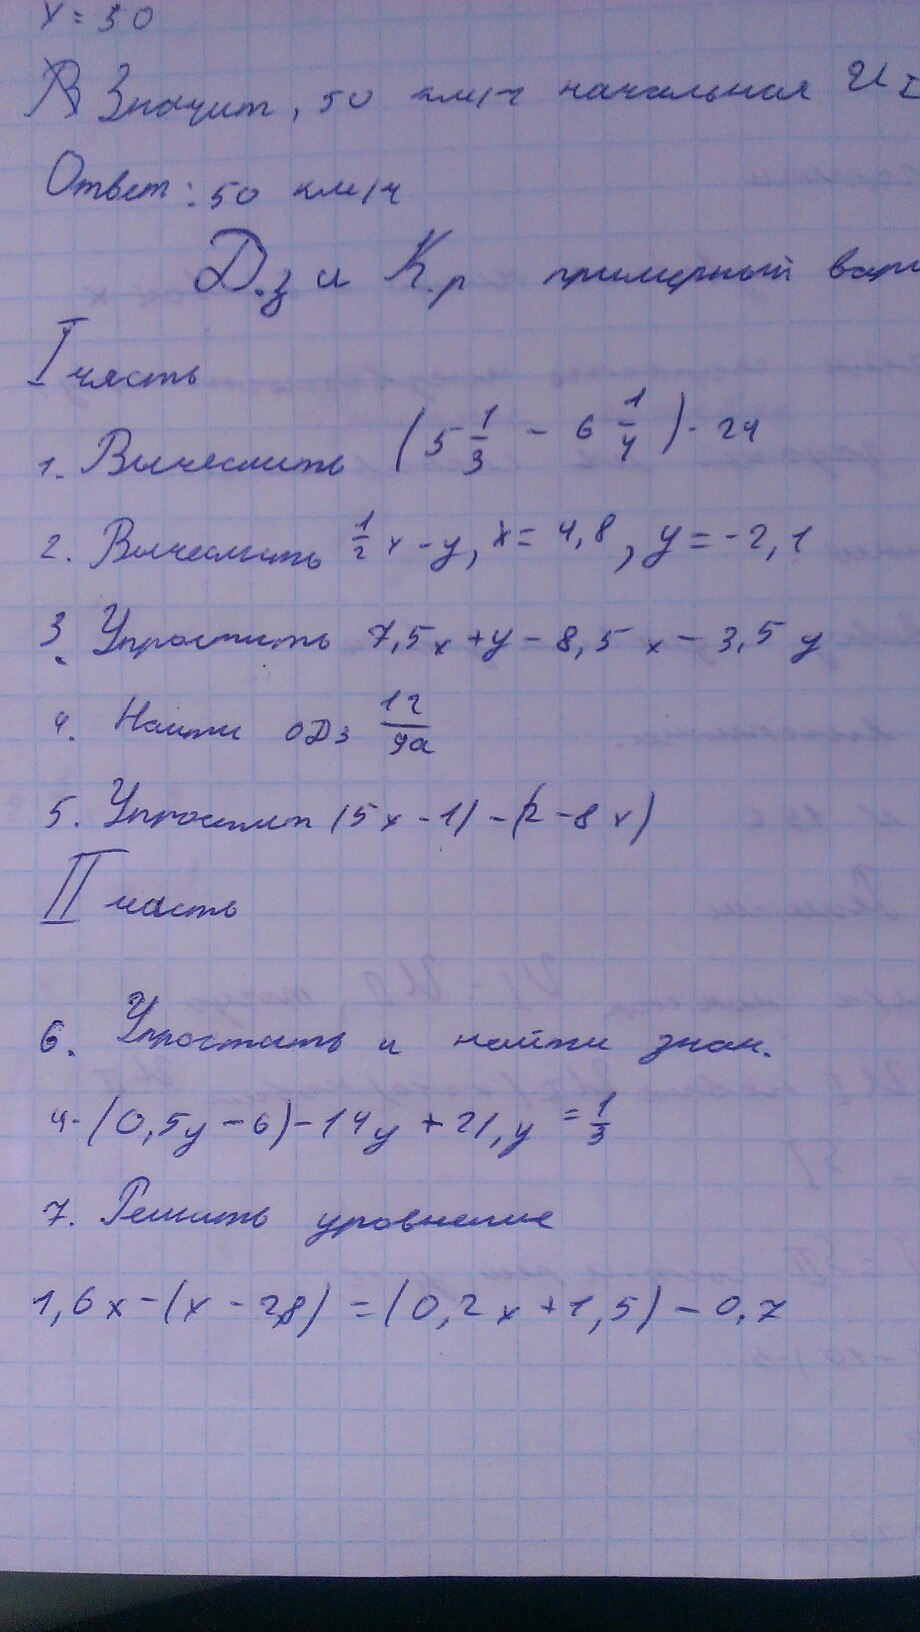 x = 50
Значит, 50 км/ч начальная
Ответ: 50 км/ч
Д.з и К.р примерный вари
I часть
1. Вычеслить (5 1/3 - 6 1/4) · 24
2. Вычеслить 1/2 x - y, x = 4,8, y = -2,1
3. Упростить 7,5x + y - 8,5x - 3,5y
4. Найти ОДЗ 12/9a
5. Упростит (5x - 1) - (2 - 8x)
II часть
6. Упростить и найти знач.
4 · (0,5y - 6) - 14y + 21, y = 1/3
7. Решить уровнение
1,6x - (x - 2,8) = (0,2x + 1,5) - 0,7